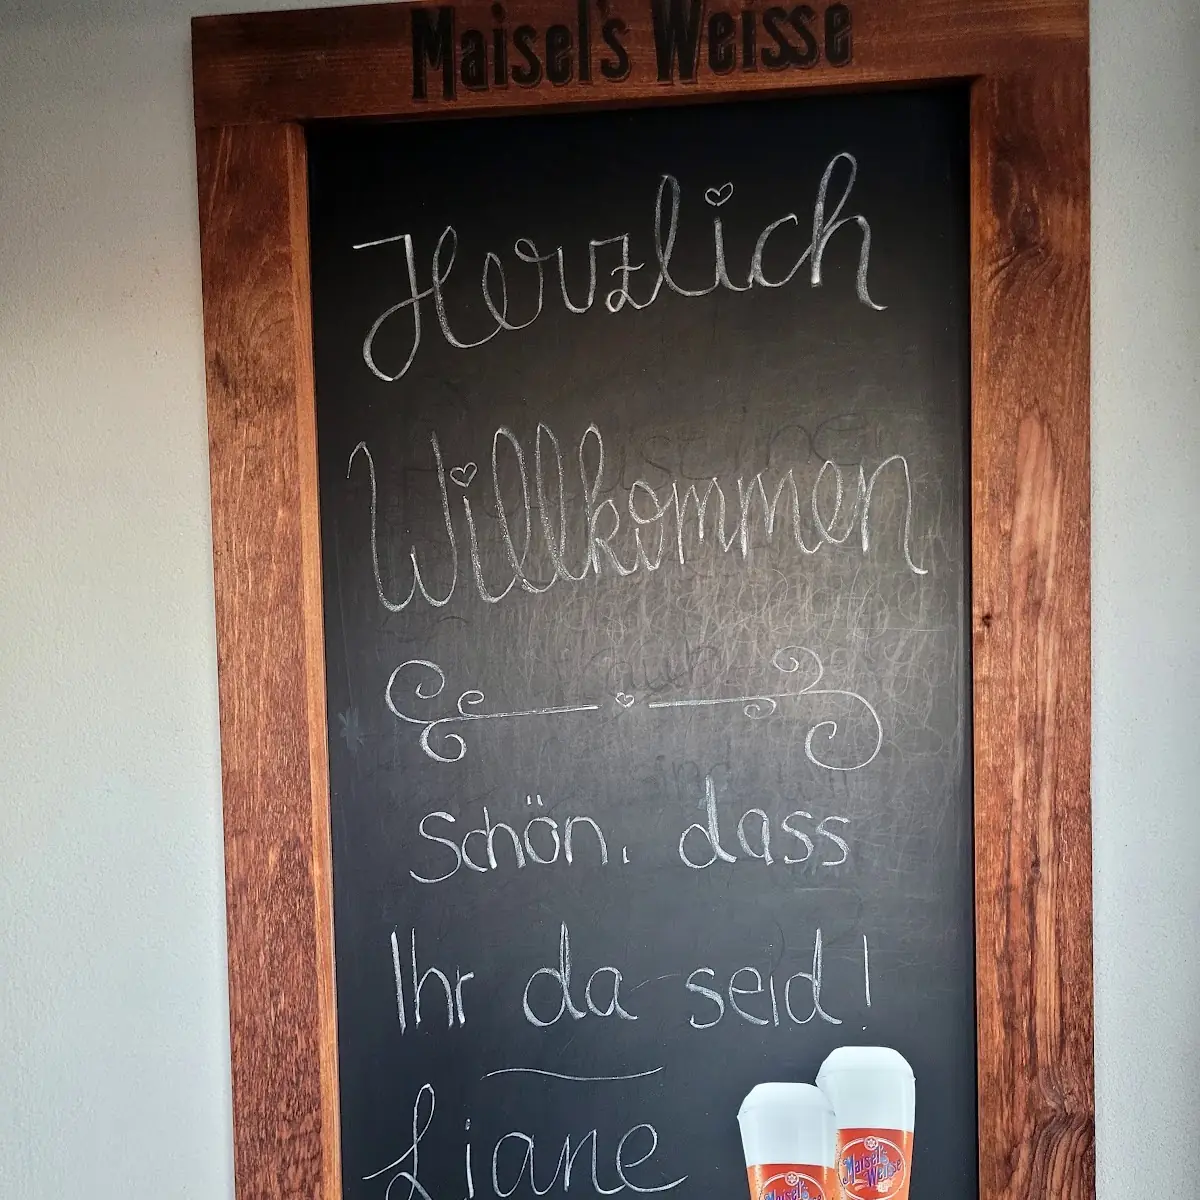 Maisel's Weisse
Herzlich
Willkommen
Schön, dass
Ihr da seid!
Liane
Maisel's
Weisse
Maisel's
Weisse